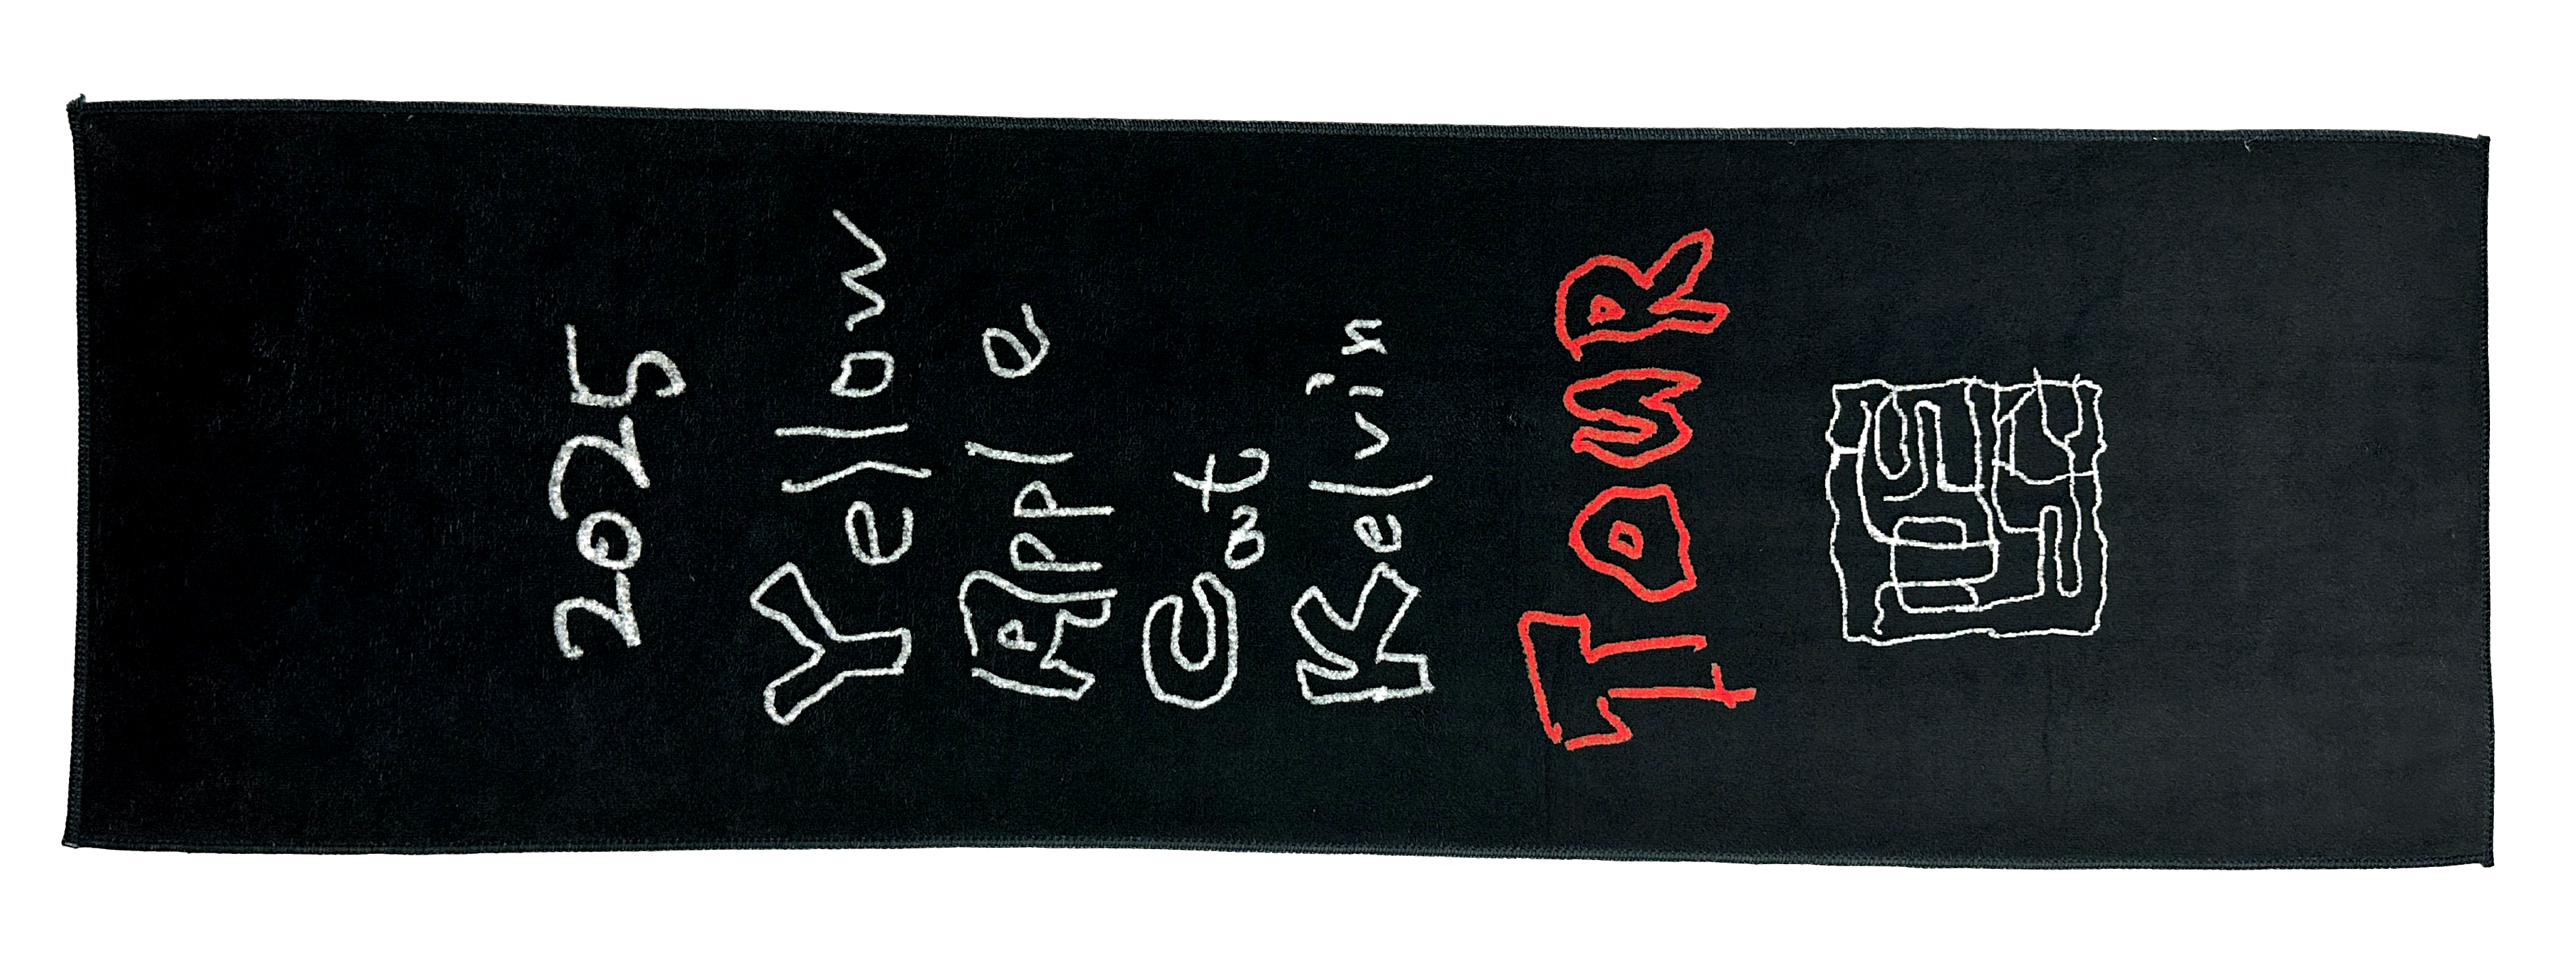 2025
Yellow
Apple
Cat
Kelvin
TouR